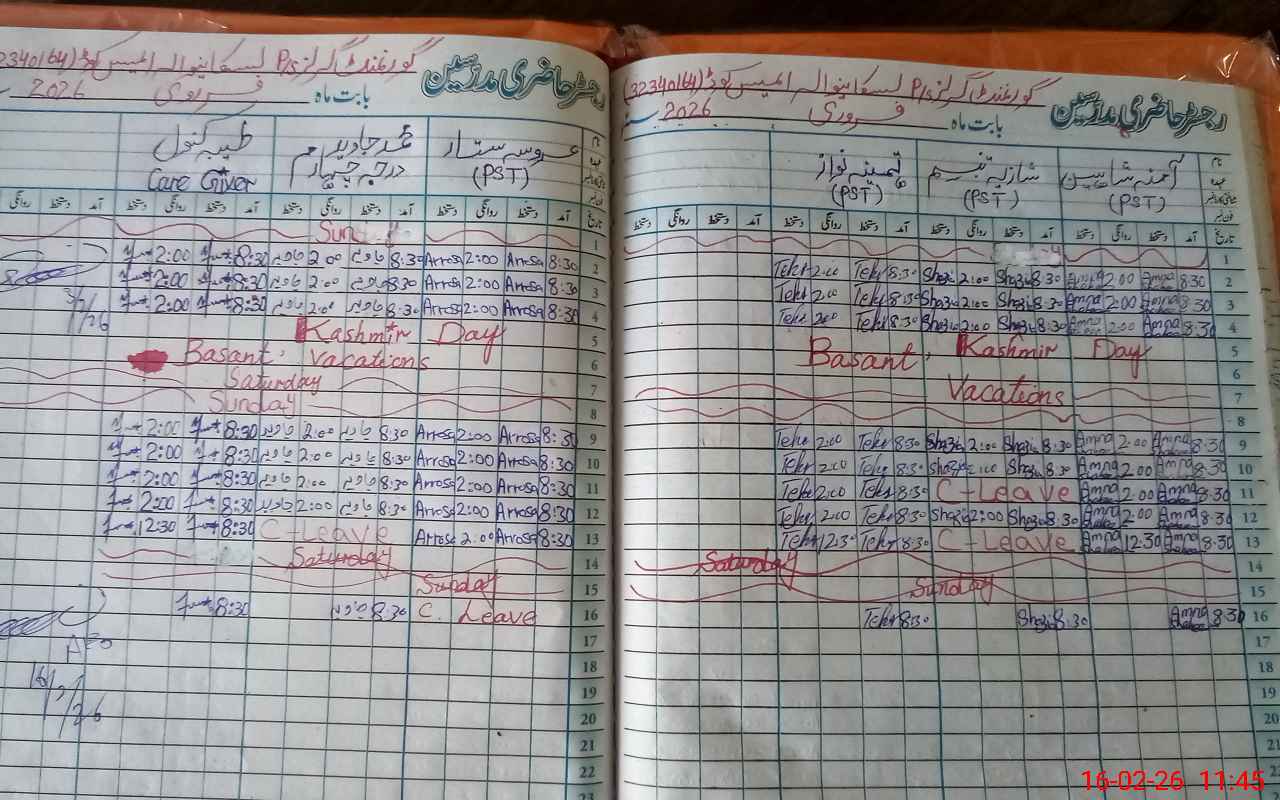 رجسٹر حاضری مدرسین
گورنمنٹ گرلز P/S لسکانیوالہ ایمیس کوڈ (32340164)
بابت ماہ فروری 2026
آمنہ شاہین (PST)
شازیہ تبسم (PST)
تہمینہ نواز (PST)
تاریخ آمد دستخط روانگی دستخط آمد دستخط روانگی دستخط آمد دستخط روانگی دستخط
1
2 8:30 Amna 2:00 Amna 8:30 Shazi 2:00 Shazi 8:30 Teh 2:00 Teh
3 8:30 Amna 2:00 Amna 8:30 Shazi 2:00 Shazi 8:30 Teh 2:00 Teh
4 8:30 Amna 2:00 Amna 8:30 Shazi 2:00 Shazi 8:30 Teh 2:00 Teh
5 Kashmir Day
6 Basant,
7 Vacations
8
9 8:30 Amna 2:00 Amna 8:30 Shazi 2:00 Shazi 8:30 Teh 2:00 Teh
10 8:30 Amna 2:00 Amna 8:30 Shazi 2:00 Shazi 8:30 Teh 2:00 Teh
11 8:30 Amna 2:00 Amna C-Leave 8:30 Teh 2:00 Teh
12 8:30 Amna 2:00 Amna 8:30 Shazi 2:00 Shazi 8:30 Teh 2:00 Teh
13 8:30 Amna 12:30 Amna C-Leave 8:30 Teh 12:30 Teh
14 Saturday
15 Sunday
16 8:30 Amna 8:30 Shazi 8:30 Teh
17
18
19
20
21
22
رجسٹر حاضری مدرسین
گورنمنٹ گرلز P/S لسکانیوالہ ایمیس کوڈ (32340164)
بابت ماہ فروری 2026
عروسہ ستار (PST)
محمد جاوید درجہ چہارم
طیبہ کنول Care Giver
تاریخ آمد دستخط روانگی دستخط آمد دستخط روانگی دستخط آمد دستخط روانگی دستخط
1
2 8:30 Arrosa 2:00 Arrosa 8:30 جاوید 2:00 جاوید 8:30 2:00
3 8:30 Arrosa 2:00 Arrosa 8:30 جاوید 2:00 جاوید 8:30 2:00
4 8:30 Arrosa 2:00 Arrosa 8:30 جاوید 2:00 جاوید 8:30 2:00
5 Kashmir Day
6 Basant, Vacations
7 Saturday
8 Sunday
9 8:30 Arrosa 2:00 Arrosa 8:30 جاوید 2:00 جاوید 8:30 2:00
10 8:30 Arrosa 2:00 Arrosa 8:30 جاوید 2:00 جاوید 8:30 2:00
11 8:30 Arrosa 2:00 Arrosa 8:30 جاوید 2:00 جاوید 8:30 2:00
12 8:30 Arrosa 2:00 Arrosa 8:30 جاوید 2:00 جاوید 8:30 2:00
13 8:30 Arrosa 2:00 Arrosa C-Leave 8:30 12:30
14 Saturday
15 Sunday
16 C. Leave 8:30 جاوید 8:30
17
18
19
20
21
22
23
3/2/26
AEO
16/2/26
16-02-26 11:45